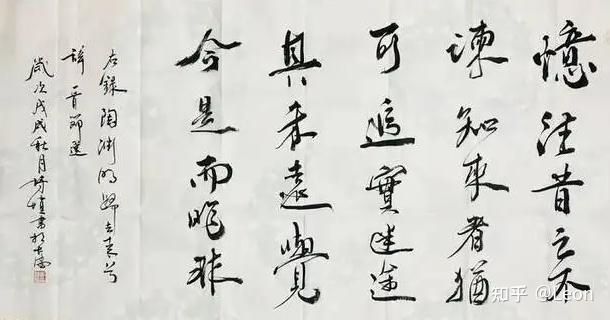 憶往昔之不
諫知來者猶
可追實迷途
其未遠覺
今是而昨非
右錄陶淵明歸去來兮
辭節選
歲次戊戌秋月書於
知乎 @Leon